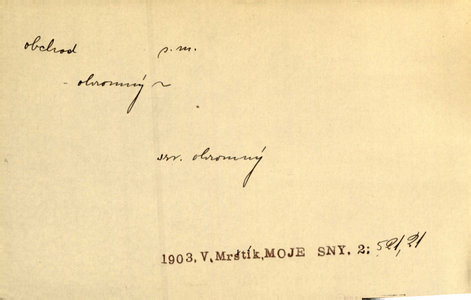 obchod s. m.
- ohromný ~
srv. ohromný
1903, V. Mrštík, MOJE SNY, 2; 521,21